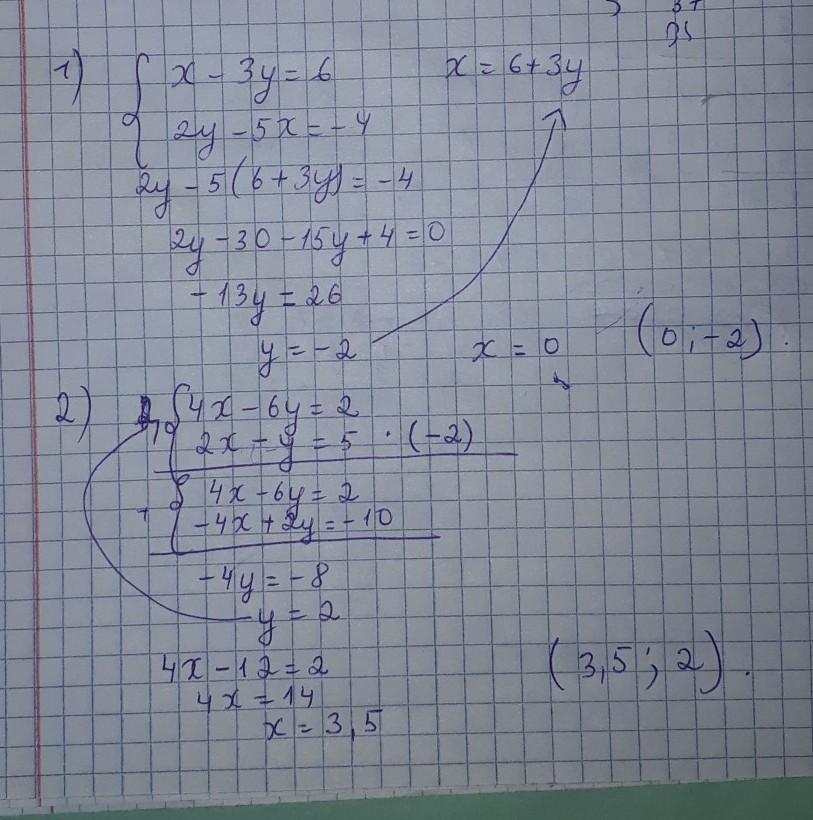 1) { x - 3y = 6    x = 6 + 3y
2y - 5x = -4
2y - 5(6 + 3y) = -4
2y - 30 - 15y + 4 = 0
-13y = 26
y = -2    x = 0    (0 ; -2) .
2) { 4x - 6y = 2
2x - y = 5 · (-2)
+ { 4x - 6y = 2
-4x + 2y = -10
-4y = -8
y = 2
4x - 12 = 2    (3,5 ; 2) .
4x = 14
x = 3,5